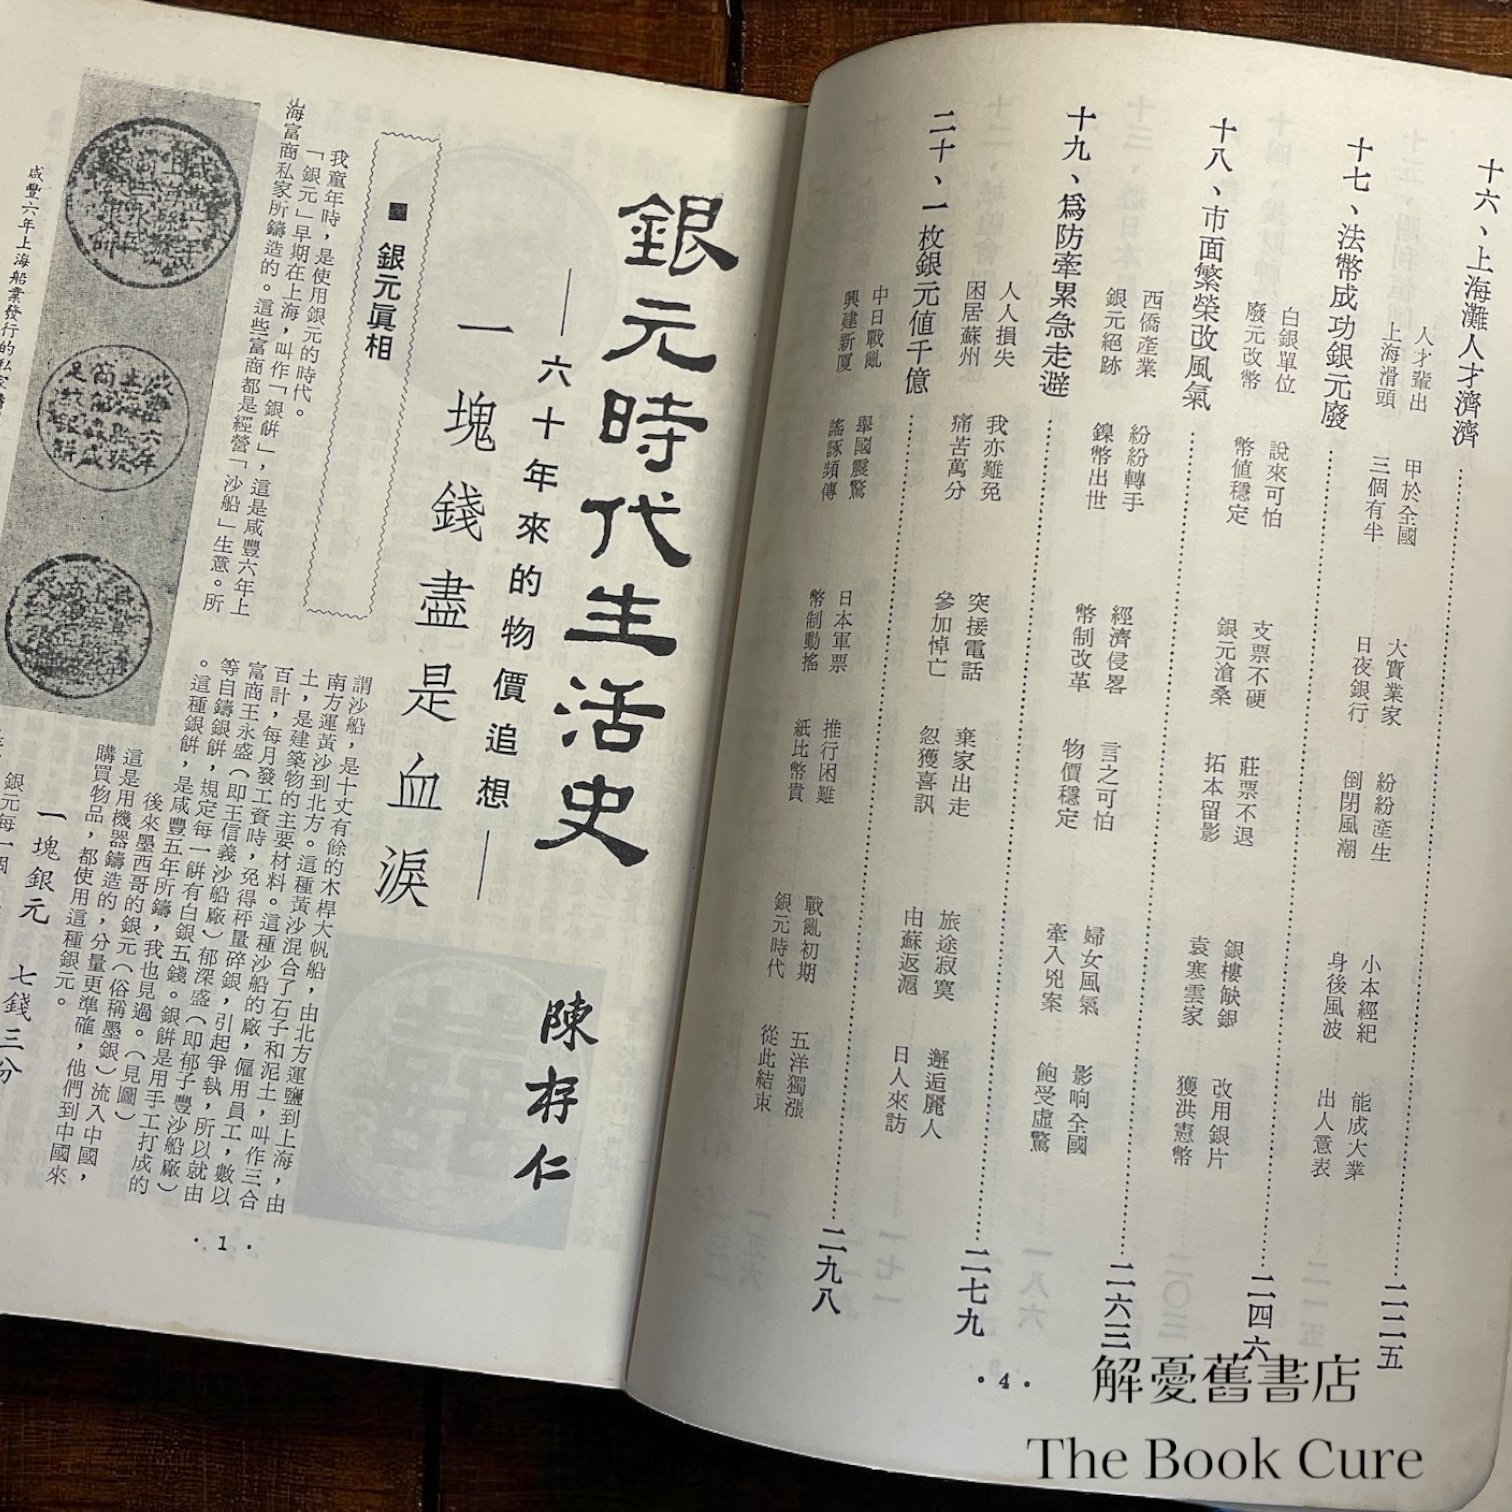 十六、上海灘人才濟濟……二二五
人才輩出 甲於全國 大實業家 紛紛產生 小本經紀 能成大業
上海滑頭 三個有半 日夜銀行 倒閉風潮 身後風波 出人意表
十七、法幣成功銀元廢……二四六
白銀單位 說來可怕 支票不硬 莊票不退 銀樓缺銀 改用銀片
廢元改幣 幣值穩定 銀元滄桑 拓本留影 袁寒雲家 獲洪憲幣
十八、市面繁榮改風氣……二六三
西僑產業 紛紛轉手 經濟侵畧 言之可怕 婦女風氣 影响全國
銀元絕跡 鎳幣出世 幣制改革 物價穩定 牽入兇案 飽受虛驚
十九、爲防牽累急走避……二七九
人人損失 我亦難免 突接電話 棄家出走 旅途寂寞 邂逅麗人
困居蘇州 痛苦萬分 參加悼亡 忽獲喜訊 由蘇返滬 日人來訪
二十、一枚銀元值千億……二九八
中日戰亂 舉國震驚 日本軍票 推行困難 戰亂初期 五洋獨漲
興建新厦 謠諑頻傳 幣制動搖 紙比幣貴 銀元時代 從此結束
·4·
銀元時代生活史
——六十年來的物價追想——
一塊錢盡是血淚
陳存仁
■ 銀元眞相
我童年時，是使用銀元的時代。
「銀元」早期在上海，叫作「銀餅」，這是咸豐六年上
海富商私家所鑄造的。這些富商都是經營「沙船」生意。所
謂沙船，是十丈有餘的木桿大帆船，由北方運鹽到上海，由
南方運黃沙到北方。這種黃沙混合了石子和泥土，叫作三合
土，是建築物的主要材料。這種沙船的廠，僱用員工，數以
百計，每月發工資時，免得秤量碎銀，引起爭執，所以就由
富商王永盛（即王信義沙船廠）郁深盛（即郁子豐沙船廠）
等自鑄銀餅，規定每一餅有白銀五錢。銀餅是用手工打成的
。這種銀餅，是咸豐五年所鑄，我也見過。（見圖）
後來墨西哥的銀元（俗稱墨銀）流入中國，
這是用機器鑄造的，分量更準確，他們到中國來
購買物品，都使用這種銀元。
一塊銀元 七錢三分
銀元每一個
咸豐六年上海船業發行的私家
·1·
解憂舊書店
The Book Cure